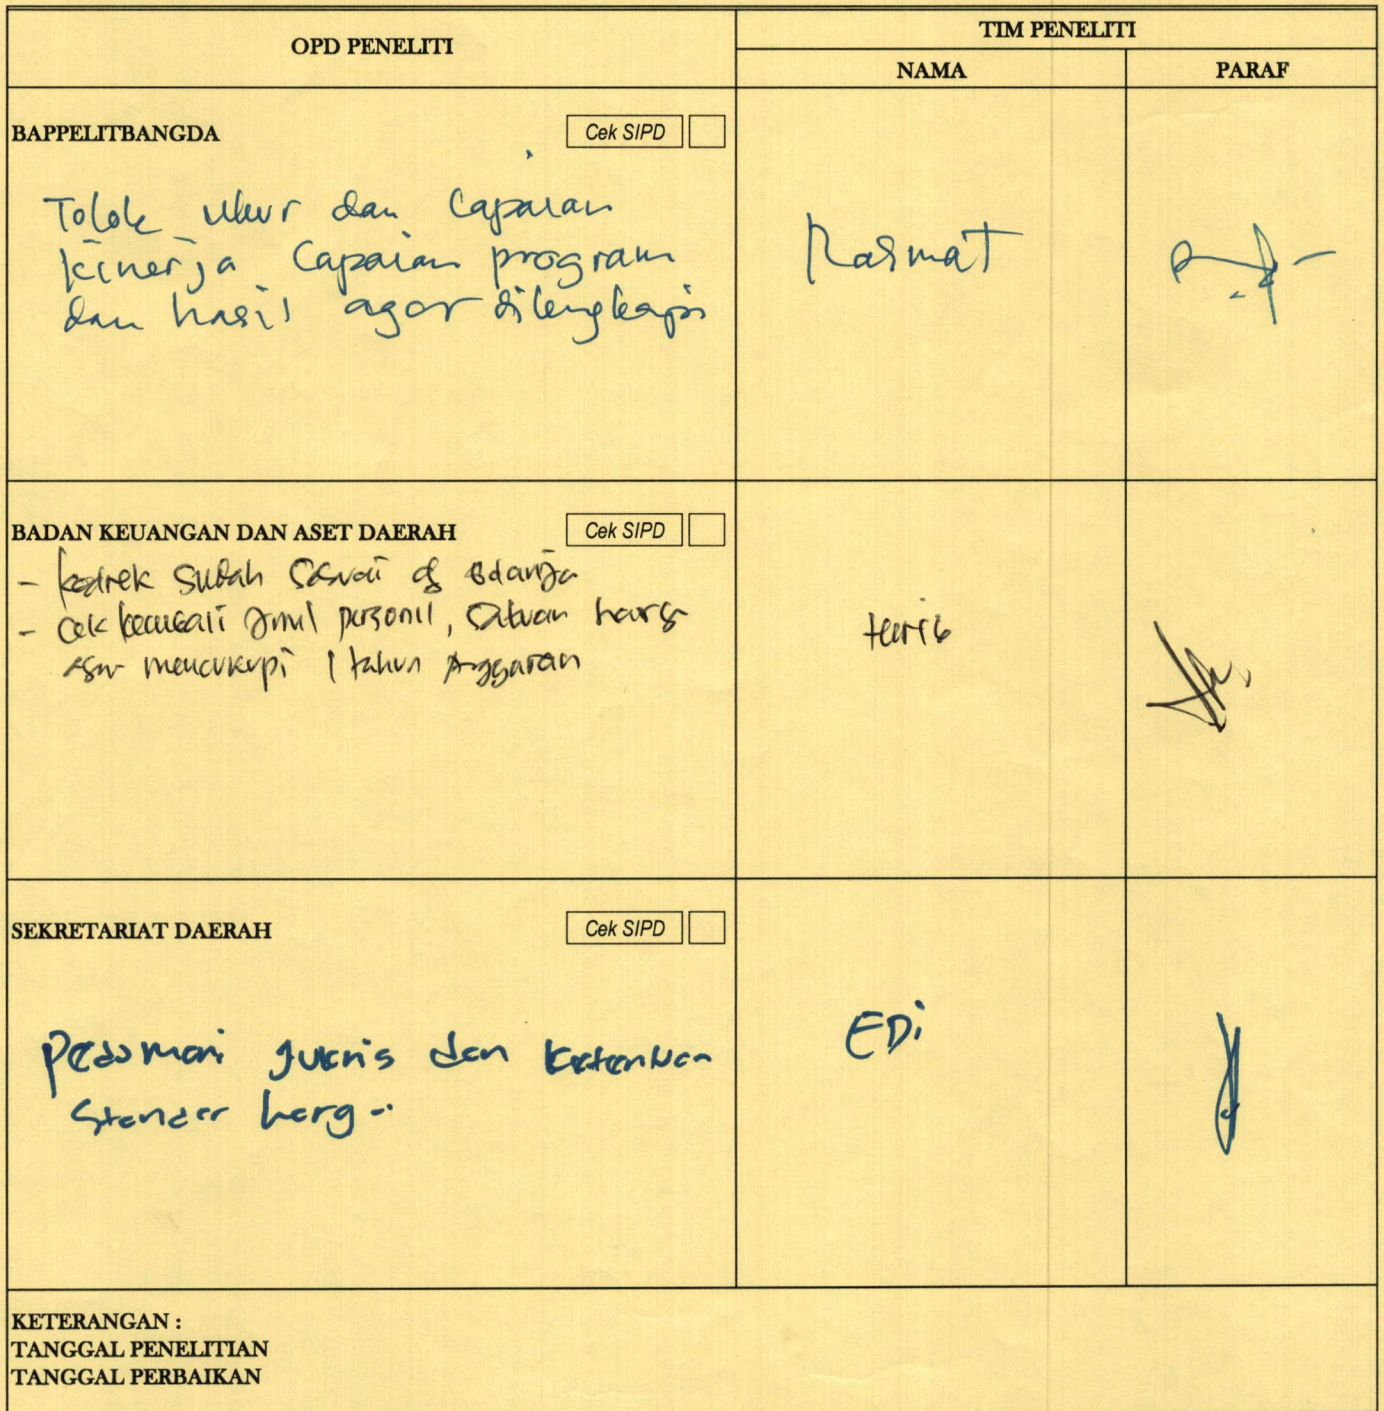 OPD PENELITI
TIM PENELITI
NAMA
PARAF
BAPPELITBANGDA
Cek SIPD
Tolok ukur dan Capaian
kinerja Capaian program
dan hasil agar dilengkapi
BADAN KEUANGAN DAN ASET DAERAH
Cek SIPD
- kodrek sudah sesuai
- Cek kembali jml personil, satuan harga
agar mencukupi 1 tahun Anggaran
SEKRETARIAT DAERAH
Cek SIPD
Pedomani juknis dan ketentuan
standar harga
EDi
KETERANGAN :
TANGGAL PENELITIAN
TANGGAL PERBAIKAN